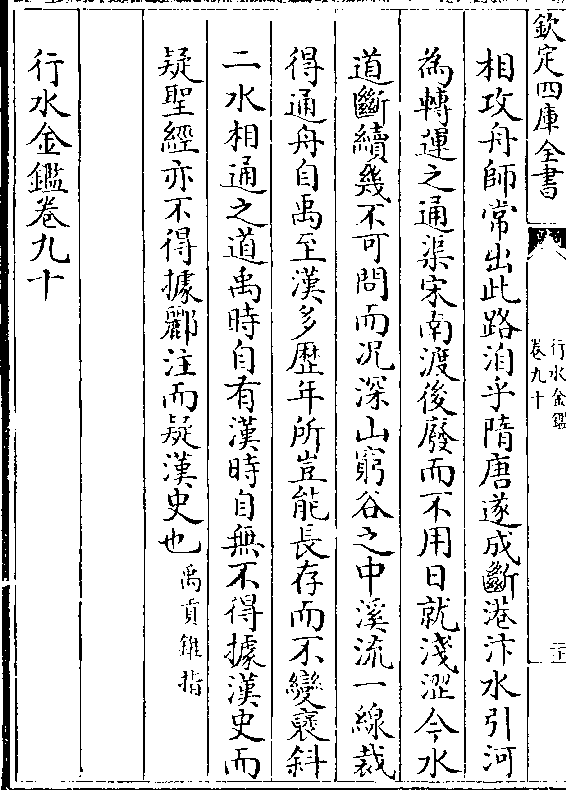 欽定四庫全書
行水金鑑
卷九十
二十
相攻舟師常出此路洎乎隋唐遂成斷港汴水引河
為轉運之通渠宋南渡後廢而不用日就淺澀今水
道斷續幾不可問而况深山窮谷之中溪流一線裁
得通舟自禹至漢多歴年所豈能長存而不變襃斜
二水相通之道禹時自有漢時自無不得據漢史而
疑聖經亦不得據酈注而疑漢史也禹貢錐指
行水金鑑卷九十